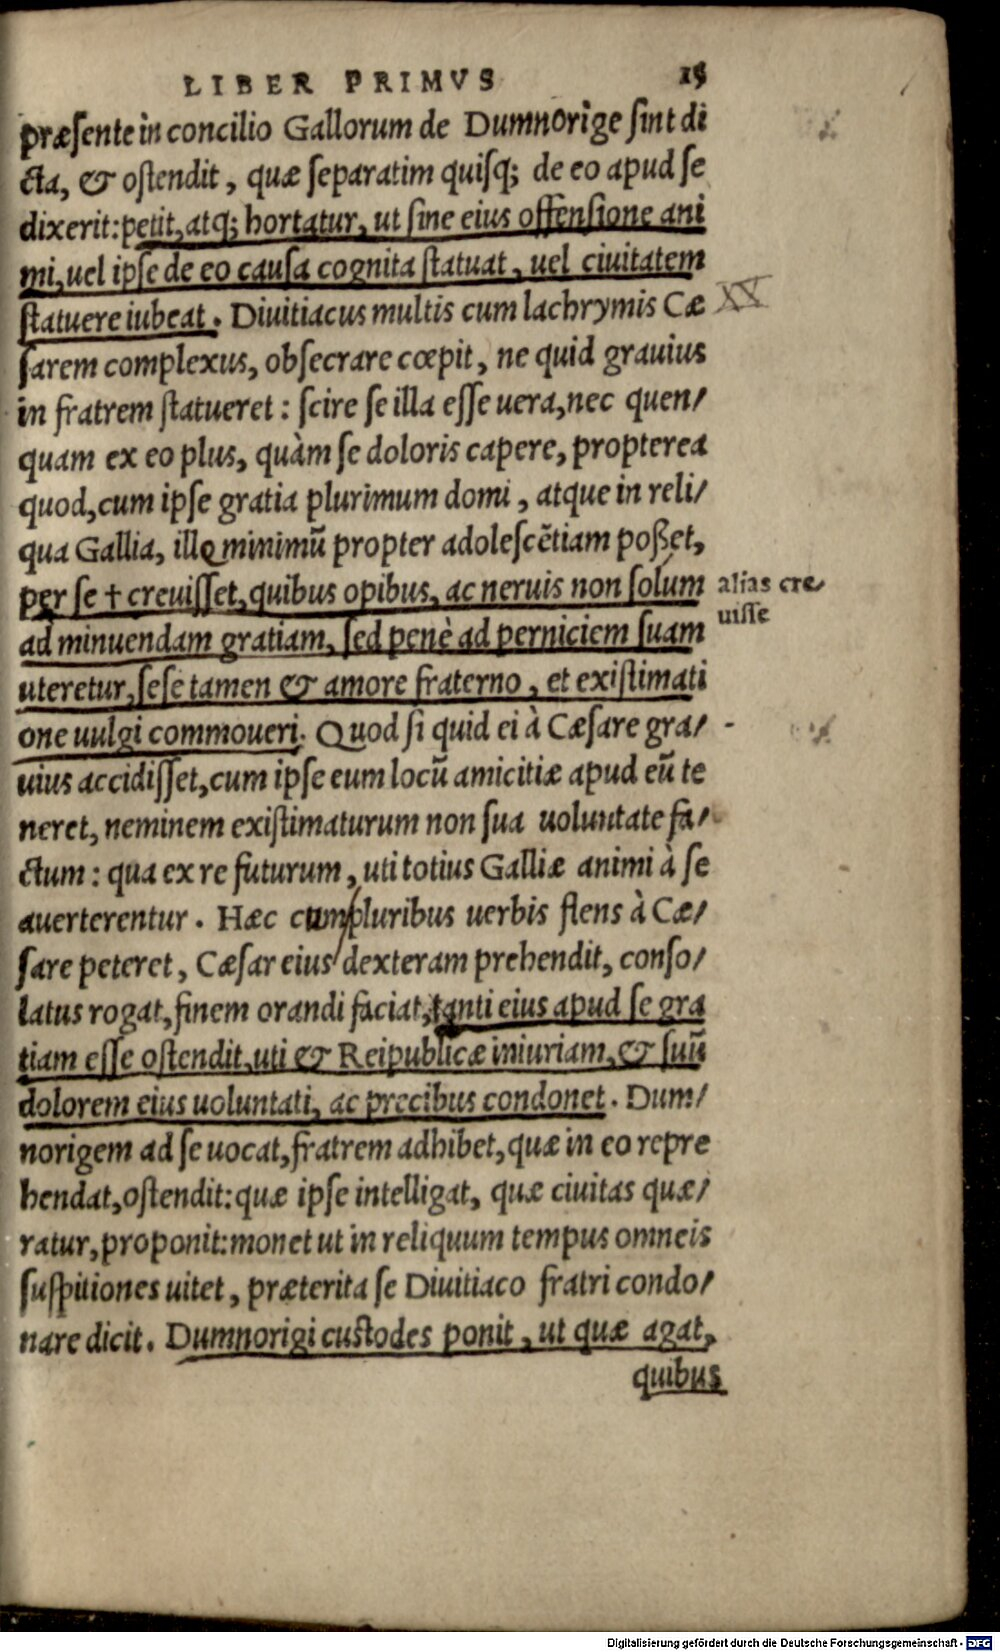 LIBER PRIMVS 15
præsente in concilio Gallorum de Dumnorige sint di
cta, & ostendit, quæ separatim quisq; de eo apud se
dixerit: petit, atq; hortatur, ut sine eius offensione ani
mi, uel ipse de eo causa cognita statuat, uel ciuitatem
statuere iubeat. Diuitiacus multis cum lachrymis Cæ
XX
sarem complexus, obsecrare cœpit, ne quid grauius
in fratrem statueret: scire se illa esse uera, nec quen/
quam ex eo plus, quàm se doloris capere, propterea
quod, cum ipse gratia plurimum domi, atque in reli/
qua Gallia, ille minimũ propter adolescẽtiam poßet,
per se † creuisset, quibus opibus, ac neruis non solùm
alias cre/
uisse
ad minuendam gratiam, sed penè ad perniciem suam
uteretur, sese tamen & amore fraterno, et existimati
one uulgi commoueri. Quod si quid ei à Cæsare gra/
uius accidisset, cum ipse eum locũ amicitiæ apud eũ te
neret, neminem existimaturum non sua uoluntate fa/
ctum: qua ex re futurum, uti totius Galliæ animi à se
auerterentur. Hæc cum pluribus uerbis flens à Cæ/
sare peteret, Cæsar eius dexteram prehendit, conso/
latus rogat, finem orandi faciat, tanti eius apud se gra
tiam esse ostendit, uti & Reipublicæ iniuriam, & suũ
dolorem eius uoluntati, ac precibus condonet. Dum/
norigem ad se uocat, fratrem adhibet, quæ in eo repre
hendat, ostendit: quæ ipse intelligat, quæ ciuitas quæ/
ratur, proponit: monet ut in reliquum tempus omneis
suspitiones uitet, præterita se Diuitiaco fratri condo/
nare dicit. Dumnorigi custodes ponit, ut quæ agat,
quibus
Digitalisierung gefördert durch die Deutsche Forschungsgemeinschaft - DFG